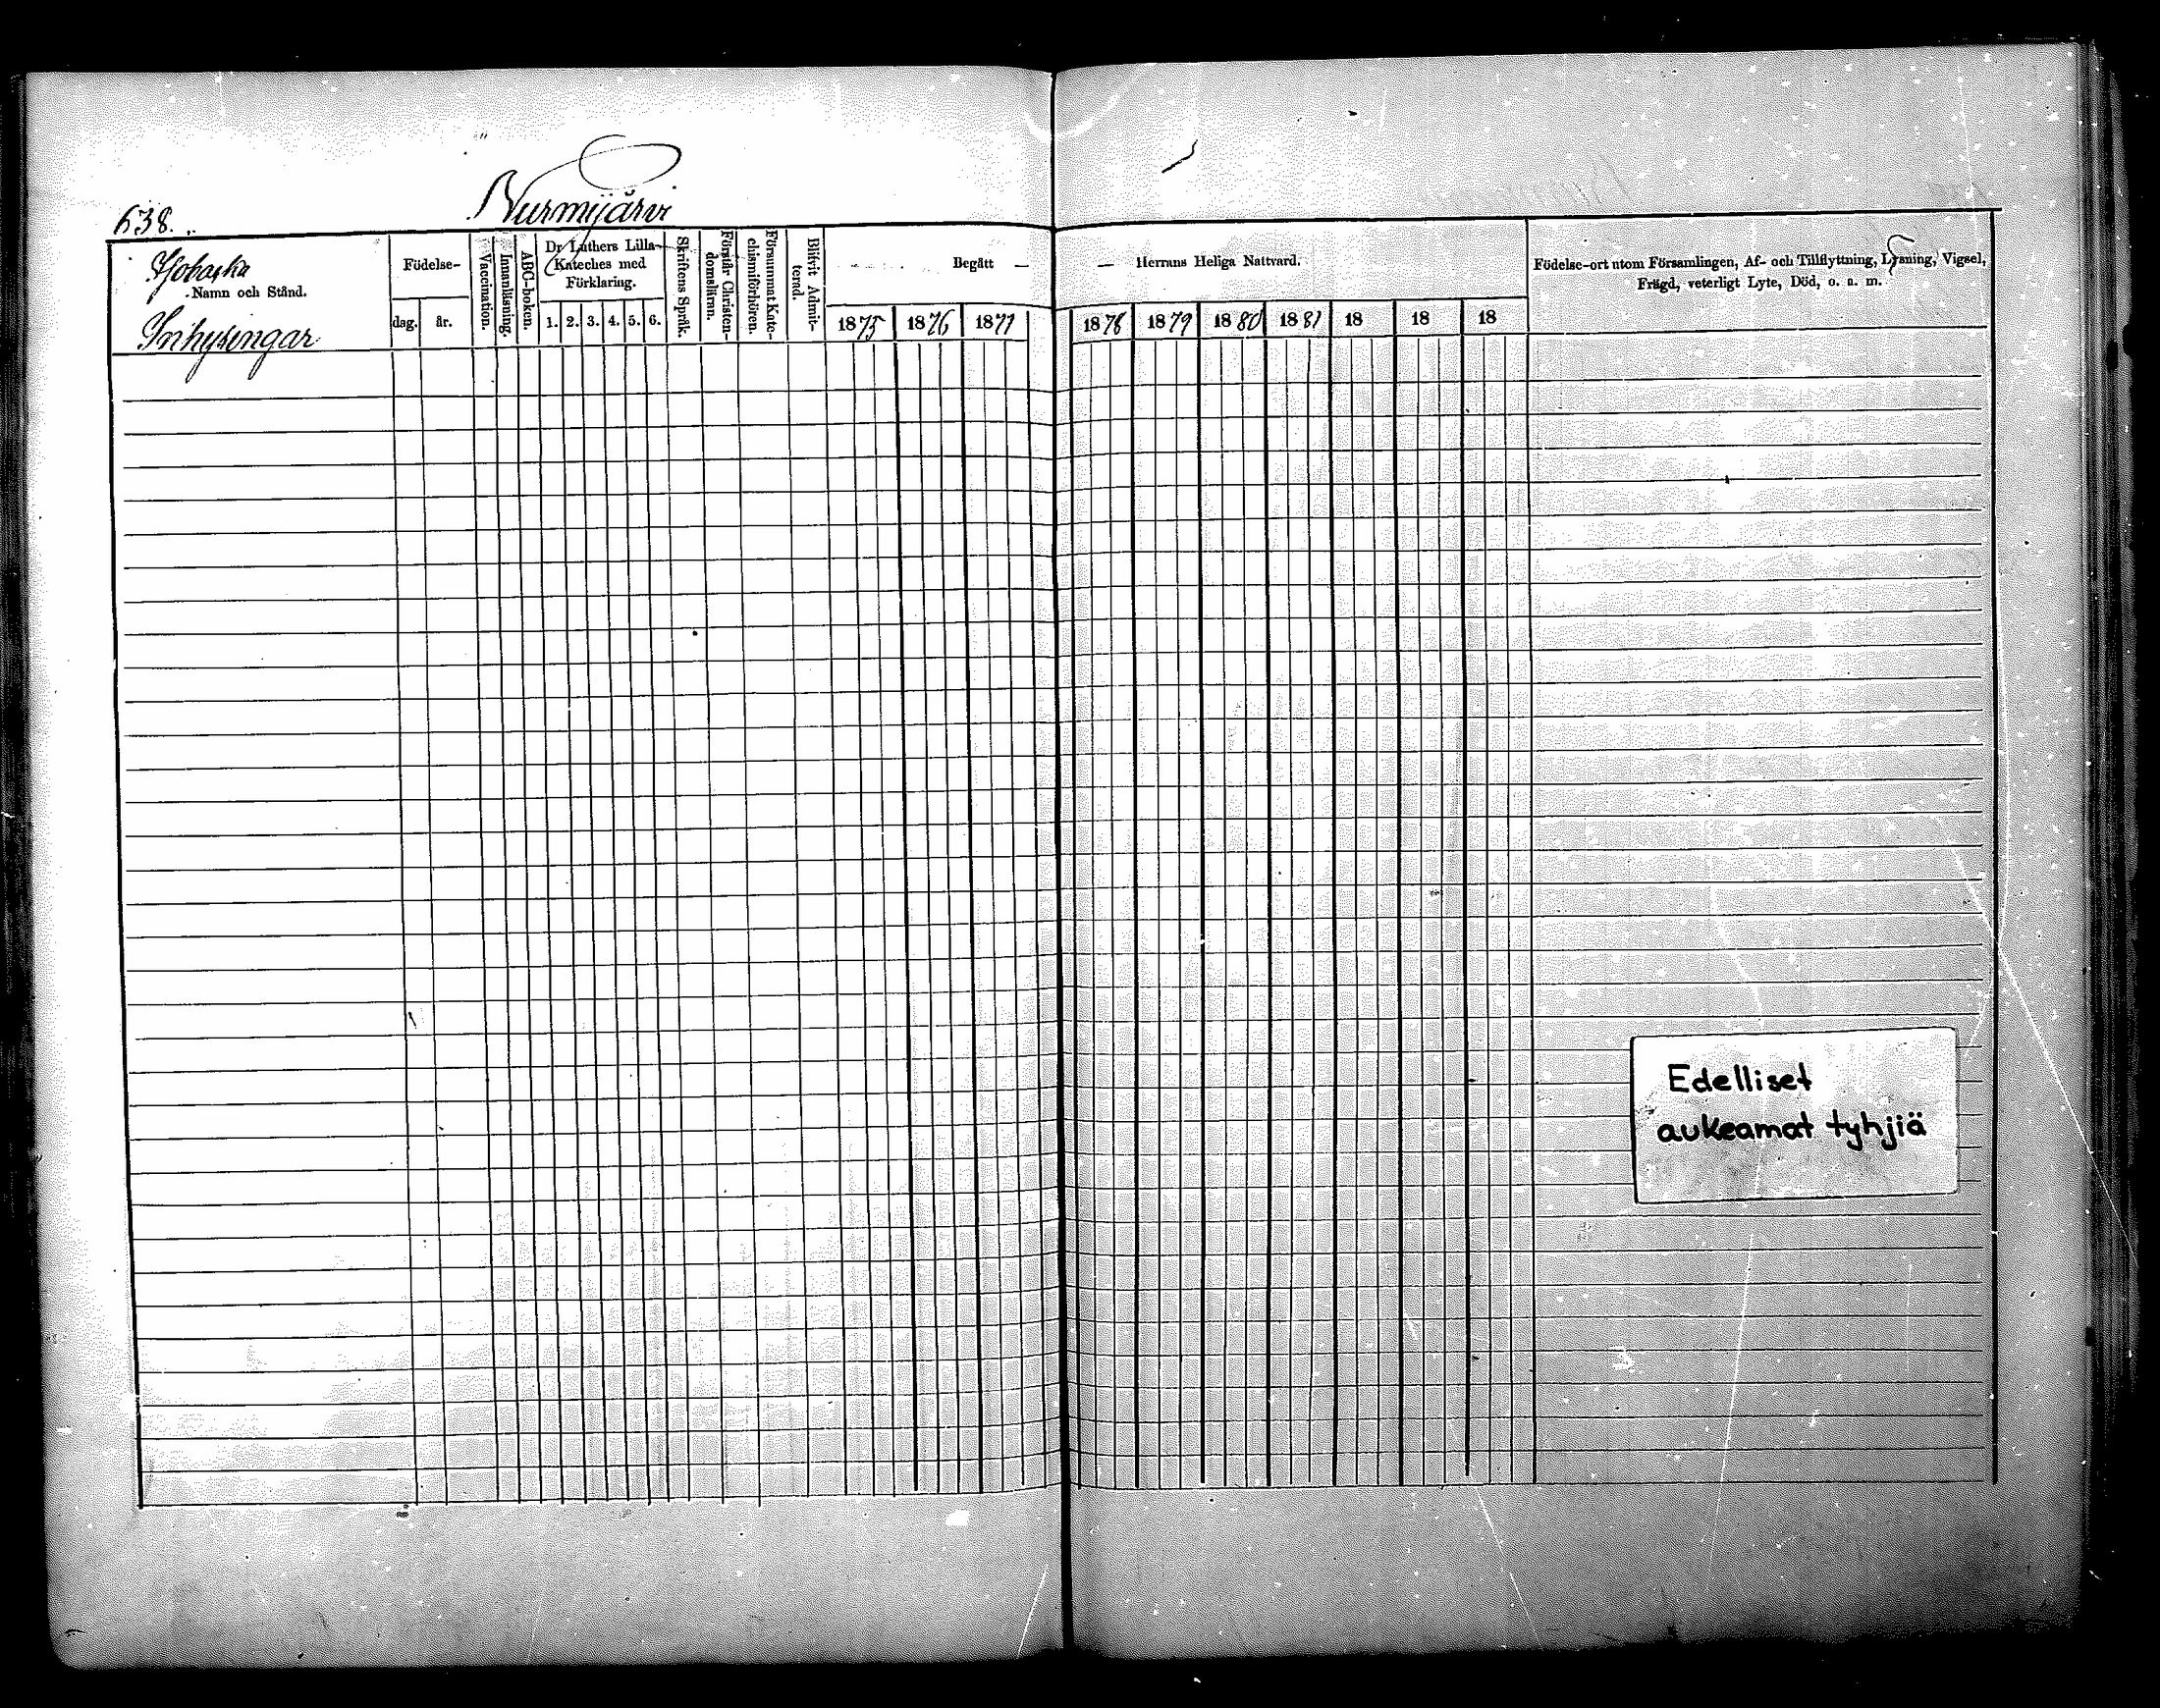 638.
Nurmijärvi
Namn och Stånd.
Inhysingar
Födelse-
dag. år.
Vaccination.
Innanläsning.
ABC-boken.
Dr Luthers Lilla
Kateches med
Förklaring.
1. 2. 3. 4. 5. 6.
Skriftens Språk.
Förstår Christen-
domsläran.
Försummat Kate-
chismiförhören.
Blifvit Admit-
terad.
Begått —
1875 1876 1877
— Herrans Heliga Nattvard.
1878 1879 1880 1881 18 18 18
Födelse-ort utom Församlingen, Af- och Tillflyttning, Lysning, Vigsel,
Frägd, veterligt Lyte, Död, o. a. m.
Edelliset
aukeamat tyhjiä